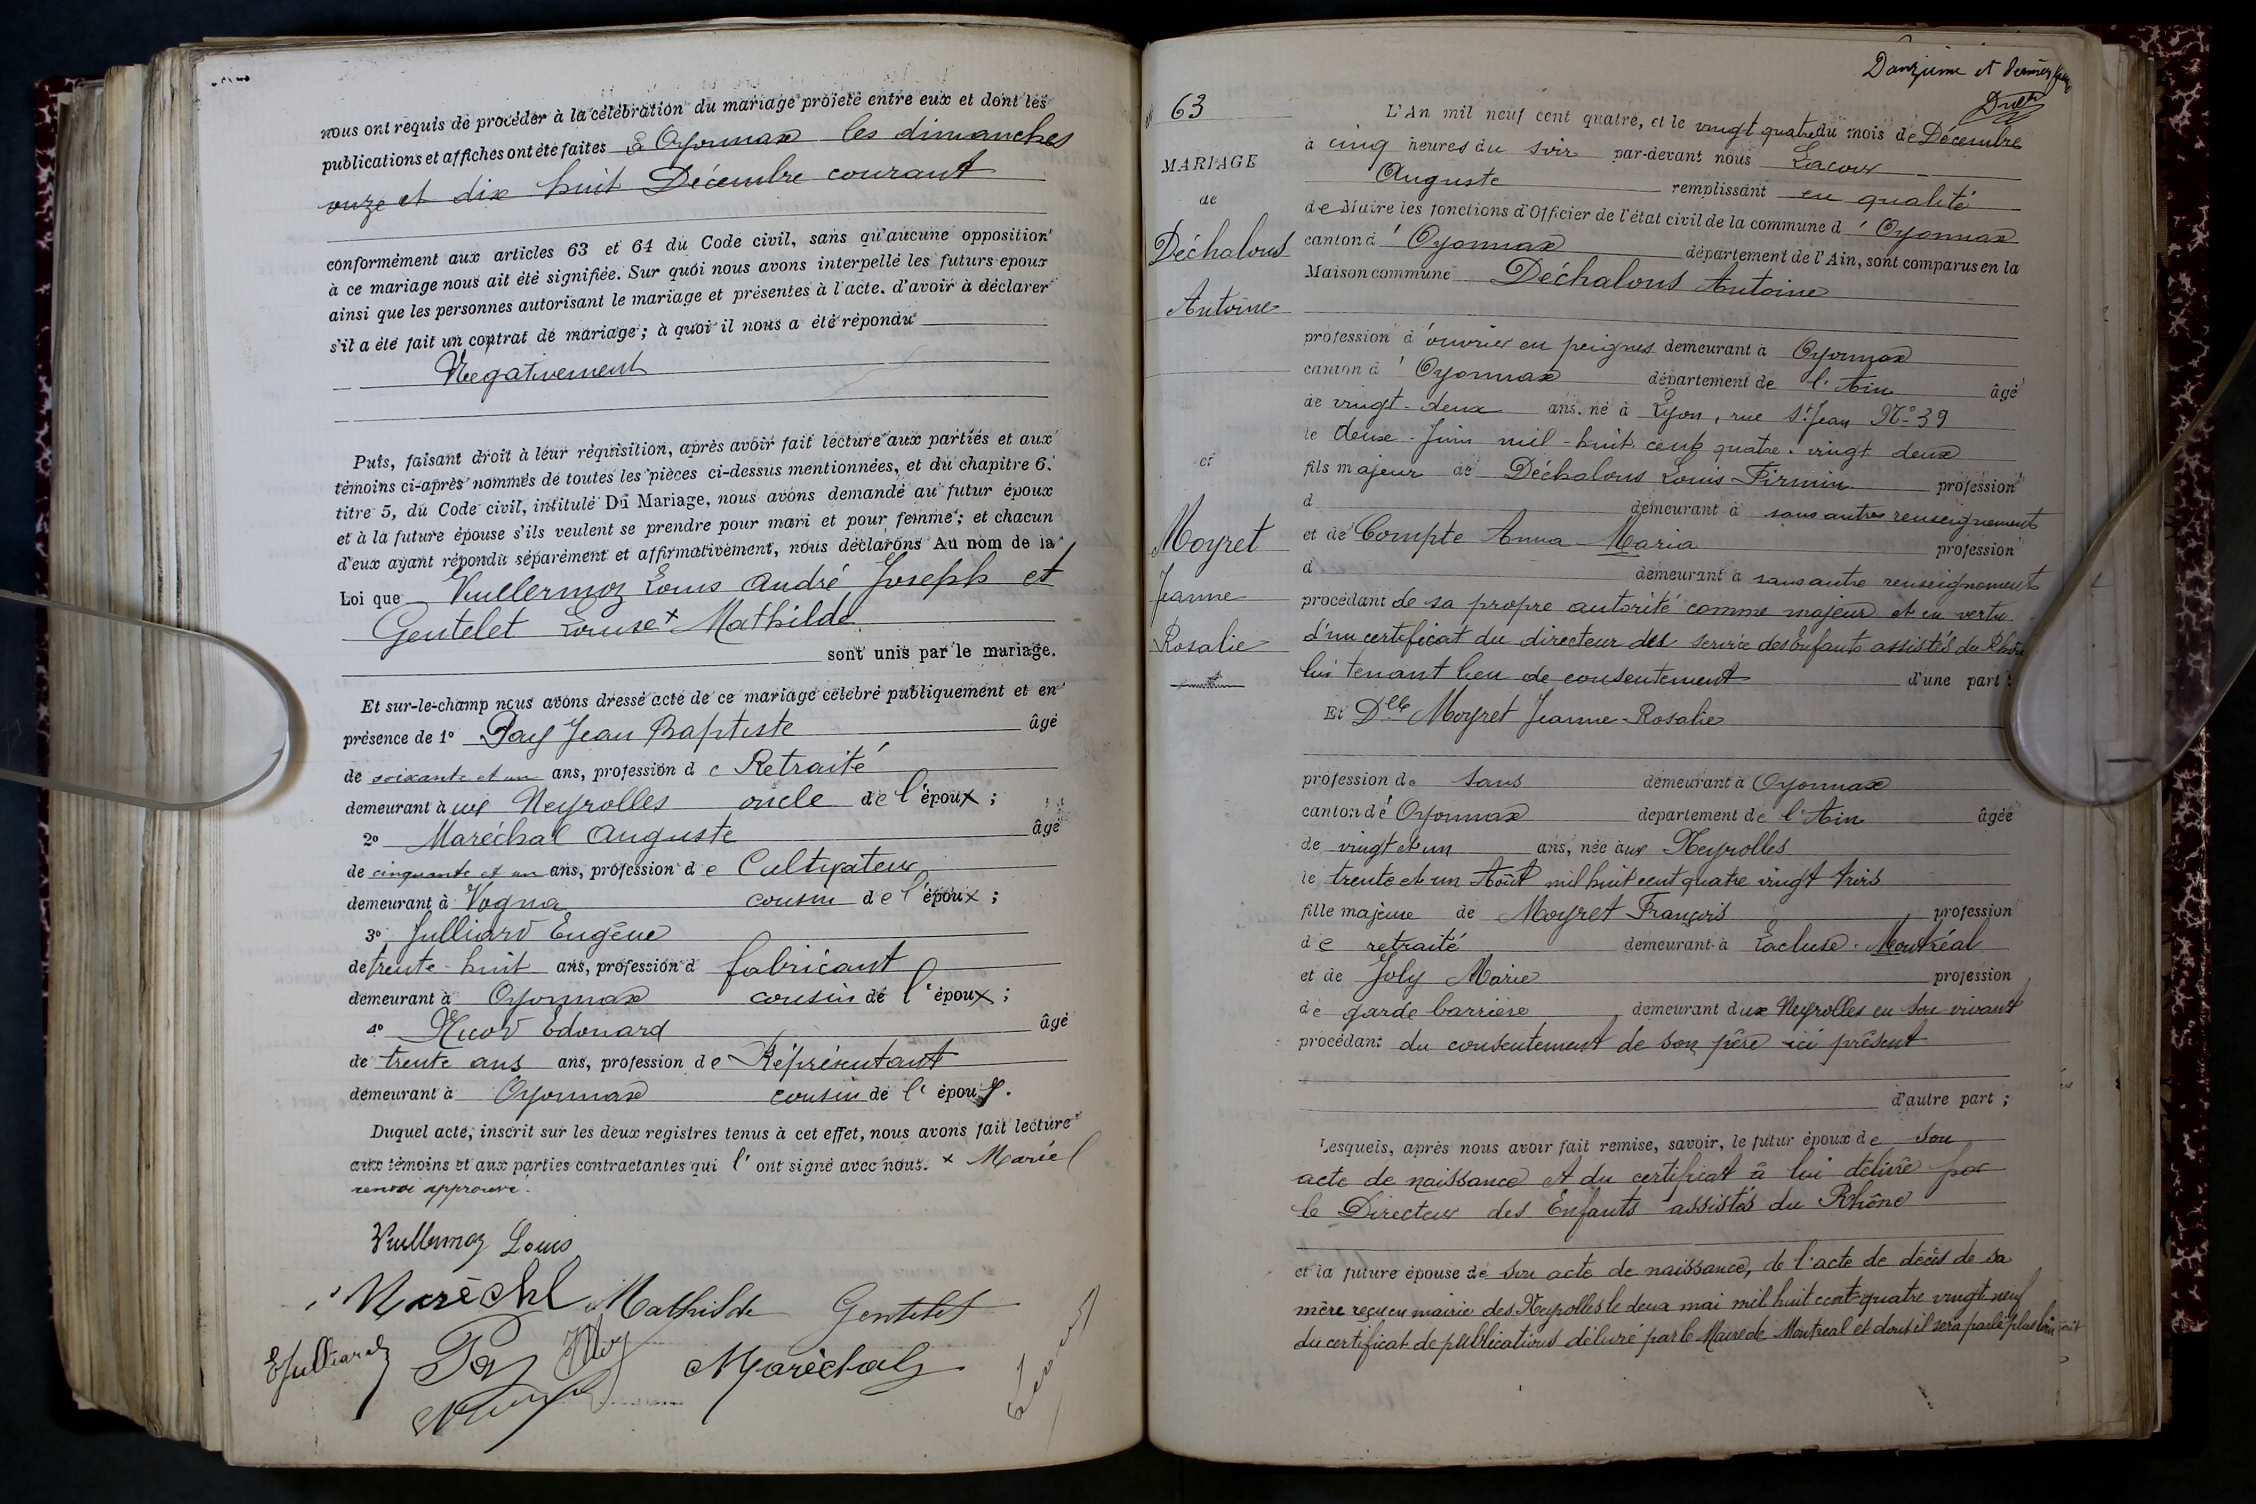 nous ont requis de procéder à la célébration du mariage projeté entre eux et dont les
publications et affiches ont été faites à Oyonnax les dimanches
onze et dix huit Décembre courant
conformément aux articles 63 et 64 du Code civil, sans qu'aucune opposition
à ce mariage nous ait été signifiée. Sur quoi nous avons interpellé les futurs époux
ainsi que les personnes autorisant le mariage et présentes à l'acte. d'avoir à déclarer
s'il a été fait un contrat de mariage ; à quoi il nous a été répondu
Négativement
Puis, faisant droit à leur réquisition, après avoir fait lecture aux parties et aux
témoins ci-après nommés de toutes les pièces ci-dessus mentionnées, et du chapitre 6.
titre 5, du Code civil, intitulé Du Mariage, nous avons demandé au futur époux
et à la future épouse s'ils veulent se prendre pour mari et pour femme ; et chacun
d'eux ayant répondu séparément et affirmativement, nous déclarons Au nom de la
Loi que Vuillermoz Louis André Joseph et
Gentelet Louise x Mathilde
sont unis par le mariage.
Et sur-le-champ nous avons dressé acte de ce mariage célébré publiquement et en
présence de 1° Pay Jean Baptiste âgé
de soixante et un ans, profession de Retraité
demeurant à ux Neyrolles oncle de l'époux ;
2° Maréchal Auguste âgé
de cinquante et un ans, profession de Cultivateur
demeurant à Vogna cousin de l'époux ;
3° Julliard Eugène
de trente-huit ans, profession d fabricant
demeurant à Oyonnax cousin de l'époux ;
4° Nicod Edouard âgé
de trente ans ans, profession de Réprésentant
demeurant à Oyonnax cousin de l'époux.
Duquel acte, inscrit sur les deux registres tenus à cet effet, nous avons fait lecture
aux témoins et aux parties contractantes qui l'ont signé avec nous. x Marie
renvoi approuvé.
Vuillermoz Louis
Maréchl Mathilde Gentelet
EJulliard Pay Maréchal
63
MARIAGE
de
Déchalons
Antoine
et
Moyret
Jeanne
Rosalie
Douzième et dernier
L'An mil neuf cent quatre, et le vingt quatre du mois de Décembre
à cinq heures du soir par-devant nous Lacour
Auguste remplissant en qualité
de Maire les fonctions d'Officier de l'état civil de la commune d'Oyonnax
canton d'Oyonnax département de l'Ain, sont comparus en la
Maison commune Déchalons Antoine
profession d'ouvrier en peignes demeurant à Oyonnax
canton d'Oyonnax département de l'Ain âgé
de vingt-deux ans. né à Lyon, rue St Jean No 39
le deux Juin mil-huit cent quatre-vingt deux
fils majeur de Déchalons Louis Firmin profession
d demeurant à sans autres renseignements
et de Compte Anna Maria profession
d demeurant à sans autre renseignements
procédant de sa propre autorité comme majeur et en vertu
d'un certificat du directeur des service des Enfants assistés du Rhône
lui tenant lieu de consentement d'une part ;
Et Dlle Moyret Jeanne-Rosalie
profession de sans demeurant à Oyonnax
canton d'Oyonnax département de l'Ain âgée
de vingt et un ans, née aux Neyrolles
le trente et un Août mil huit cent quatre vingt trois
fille majeure de Moyret François profession
de retraité demeurant à Lacluse-Montréal
et de Joly Marie profession
de garde barrière demeurant aux Neyrolles en son vivant
procédant du consentement de son père ici présent
d'autre part ;
Lesquels, après nous avoir fait remise, savoir, le futur époux de son
acte de naissance et du certificat à lui délivré par
le Directeur des Enfants assistés du Rhône
et la future épouse de son acte de naissance, de l'acte de décès de sa
mère reçu en mairie des Neyrolles le deux mai mil huit cent quatre vingt neuf
du certificat de publications délivré par le Maire de Montréal et dont il sera parlé plus loin